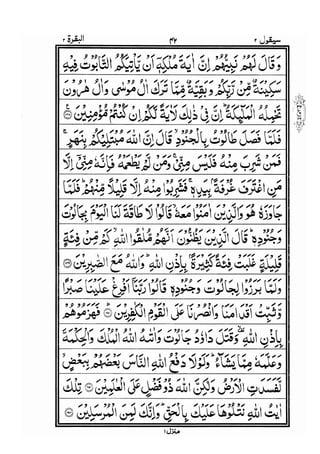 سيقول ٢ ٤٧ البقرة ٢
وَقَالَ لَهُمْ نَبِيُّهُمْ اِنَّ اٰيَةَ مُلْكِهٖٓ اَنْ يَّاْتِيَكُمُ التَّابُوْتُ فِيْهِ
سَكِيْنَةٌ مِّنْ رَّبِّكُمْ وَبَقِيَّةٌ مِّمَّا تَرَكَ اٰلُ مُوْسٰى وَاٰلُ هٰرُوْنَ
تَحْمِلُهُ الْمَلٰٓئِكَةُ ؕ اِنَّ فِيْ ذٰلِكَ لَاٰيَةً لَّكُمْ اِنْ كُنْتُمْ مُّؤْمِنِيْنَ
فَلَمَّا فَصَلَ طَالُوْتُ بِالْجُنُوْدِ ۙ قَالَ اِنَّ اللّٰهَ مُبْتَلِيْكُمْ بِنَهَرٍ ۚ
فَمَنْ شَرِبَ مِنْهُ فَلَيْسَ مِنِّيْ ۚ وَمَنْ لَّمْ يَطْعَمْهُ فَاِنَّهٗ مِنِّيْٓ اِلَّا
مَنِ اغْتَرَفَ غُرْفَةًۢ بِيَدِهٖ ۚ فَشَرِبُوْا مِنْهُ اِلَّا قَلِيْلًا مِّنْهُمْ ؕ فَلَمَّا
جَاوَزَهٗ هُوَ وَالَّذِيْنَ اٰمَنُوْا مَعَهٗ ۙ قَالُوْا لَا طَاقَةَ لَنَا الْيَوْمَ بِجَالُوْتَ
وَجُنُوْدِهٖ ؕ قَالَ الَّذِيْنَ يَظُنُّوْنَ اَنَّهُمْ مُّلٰقُوا اللّٰهِ ۙ كَمْ مِّنْ فِئَةٍ
قَلِيْلَةٍ غَلَبَتْ فِئَةً كَثِيْرَةًۢ بِاِذْنِ اللّٰهِ ؕ وَاللّٰهُ مَعَ الصّٰبِرِيْنَ
وَلَمَّا بَرَزُوْا لِجَالُوْتَ وَجُنُوْدِهٖ قَالُوْا رَبَّنَآ اَفْرِغْ عَلَيْنَا صَبْرًا
وَّثَبِّتْ اَقْدَامَنَا وَانْصُرْنَا عَلَى الْقَوْمِ الْكٰفِرِيْنَ ؕ فَهَزَمُوْهُمْ
بِاِذْنِ اللّٰهِ ۙ وَقَتَلَ دَاوٗدُ جَالُوْتَ وَاٰتٰىهُ اللّٰهُ الْمُلْكَ وَالْحِكْمَةَ
وَعَلَّمَهٗ مِمَّا يَشَآءُ ؕ وَلَوْلَا دَفْعُ اللّٰهِ النَّاسَ بَعْضَهُمْ بِبَعْضٍ
لَّفَسَدَتِ الْاَرْضُ وَلٰكِنَّ اللّٰهَ ذُوْ فَضْلٍ عَلَى الْعٰلَمِيْنَ تِلْكَ
اٰيٰتُ اللّٰهِ نَتْلُوْهَا عَلَيْكَ بِالْحَقِّ ؕ وَاِنَّكَ لَمِنَ الْمُرْسَلِيْنَ
منزل ١